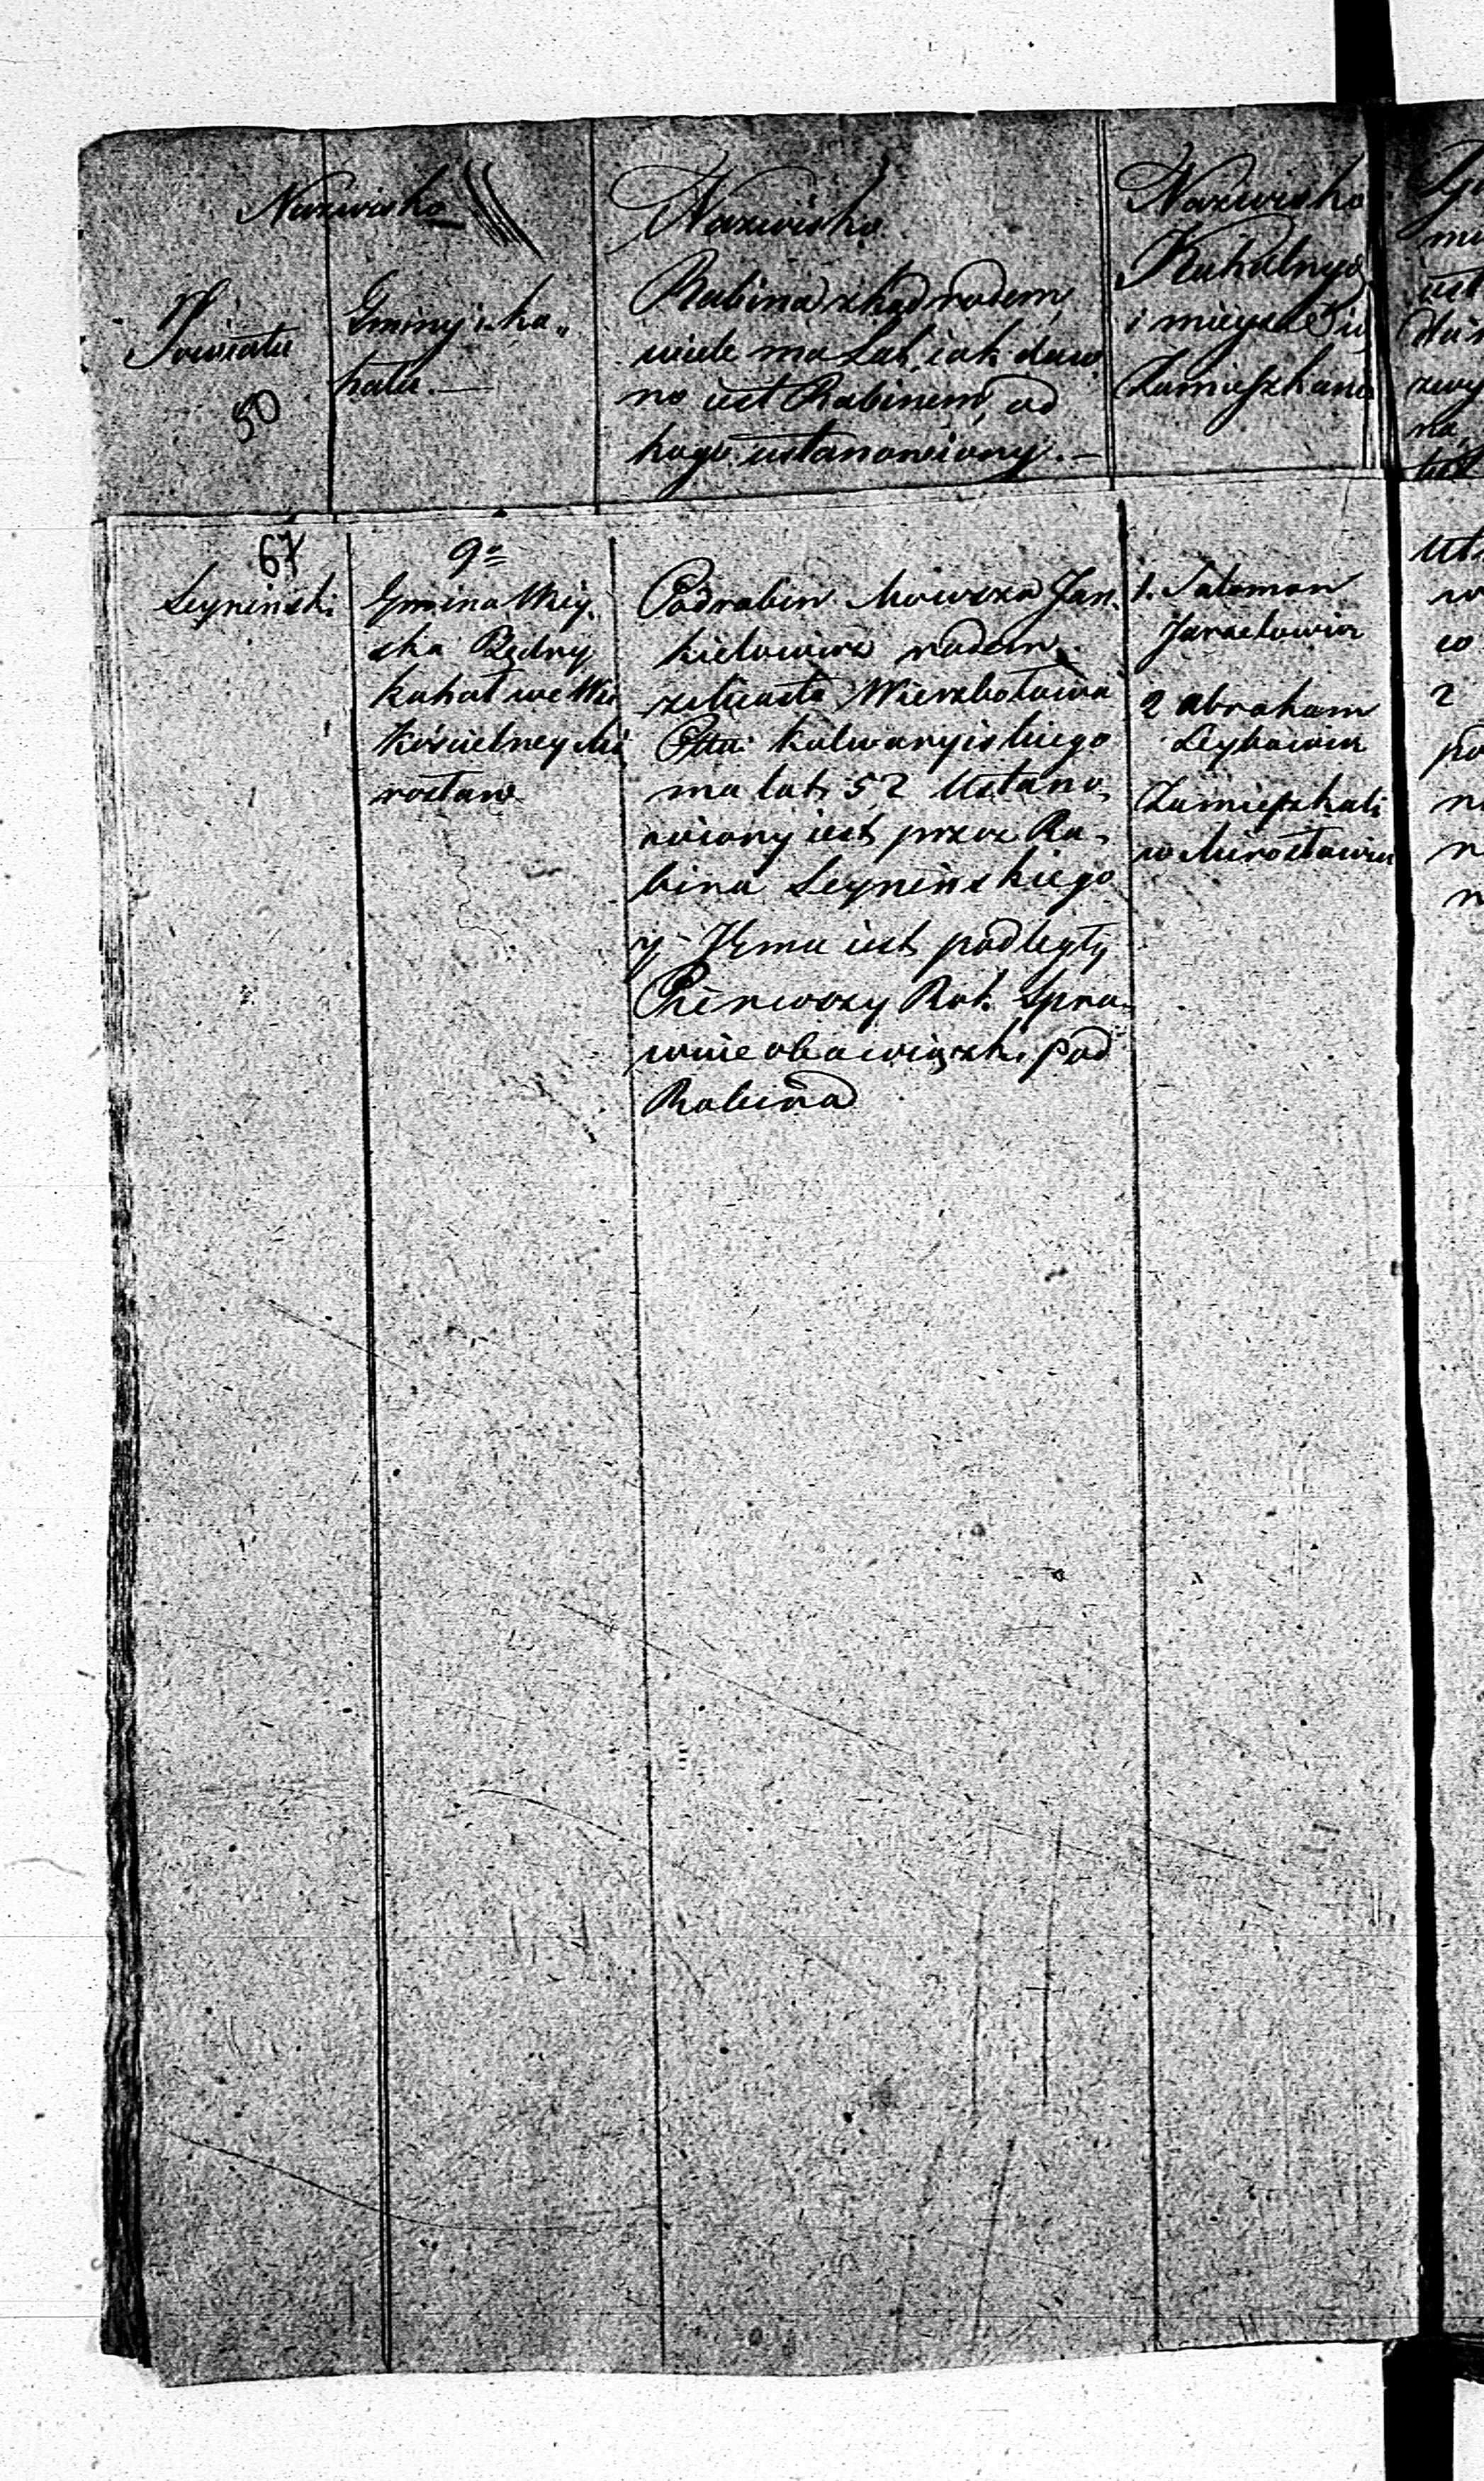 Nazwisko
Powiatu
50
Gminy i ka„
hału. —
Nazwisko
Rabina zkąd rodem,
wiele ma Lat, iak daw„
no iest Rabinem, od
kogo ustanowiony. —
Nazwisko
Kahalnych
i mieysce ich
Zamieszkania
67
Seyneński
9o
Gmina Wiey„
ska Rudny
kahał we Wsi
Kościelney Mi„
rosław
Podrabin Mowsza Jan„
kielowicz rodem
z Miasta Wierzbołowa
Pttu Kalwaryiskiego
ma lat 52 Ustano„
wiony iest przez Ra„
bina Seyneńskiego
y Jemu iest podległy
Pierwszy Rok Spra„
wuie obowiązki pod
Rabina
1. Salomon
Jzraelowicz
2 Abraham
Leybowicz
Zamieszkali
w Mirosławiu